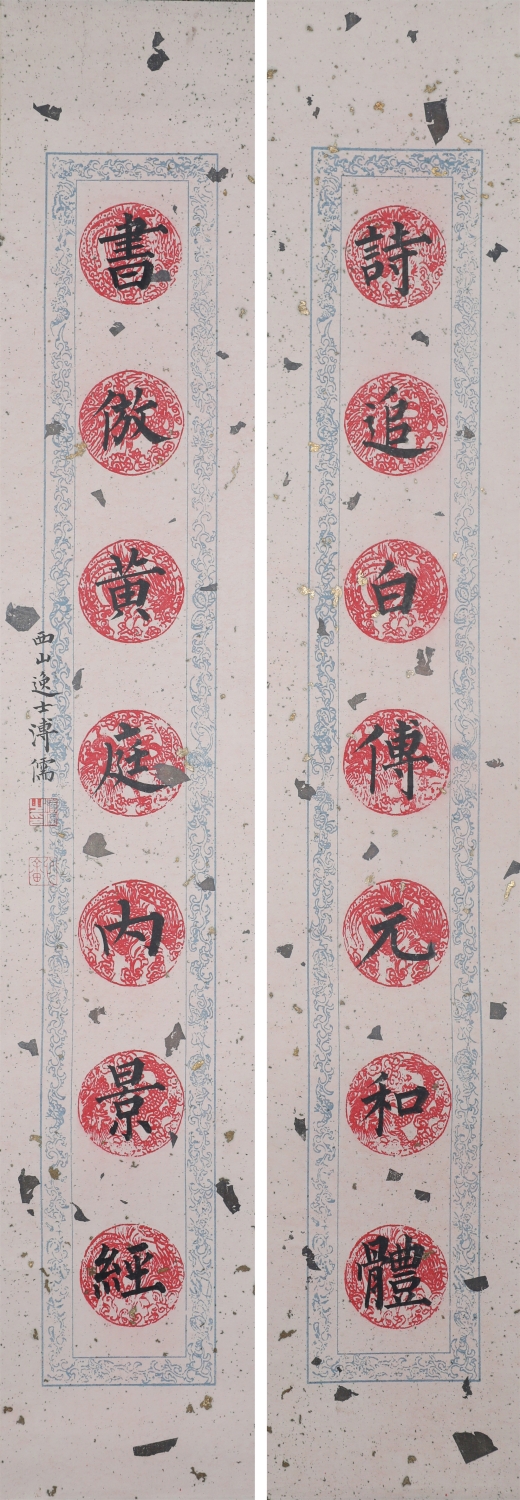 詩追白傅元和體
書倣黃庭內景經
西山逸士溥儒